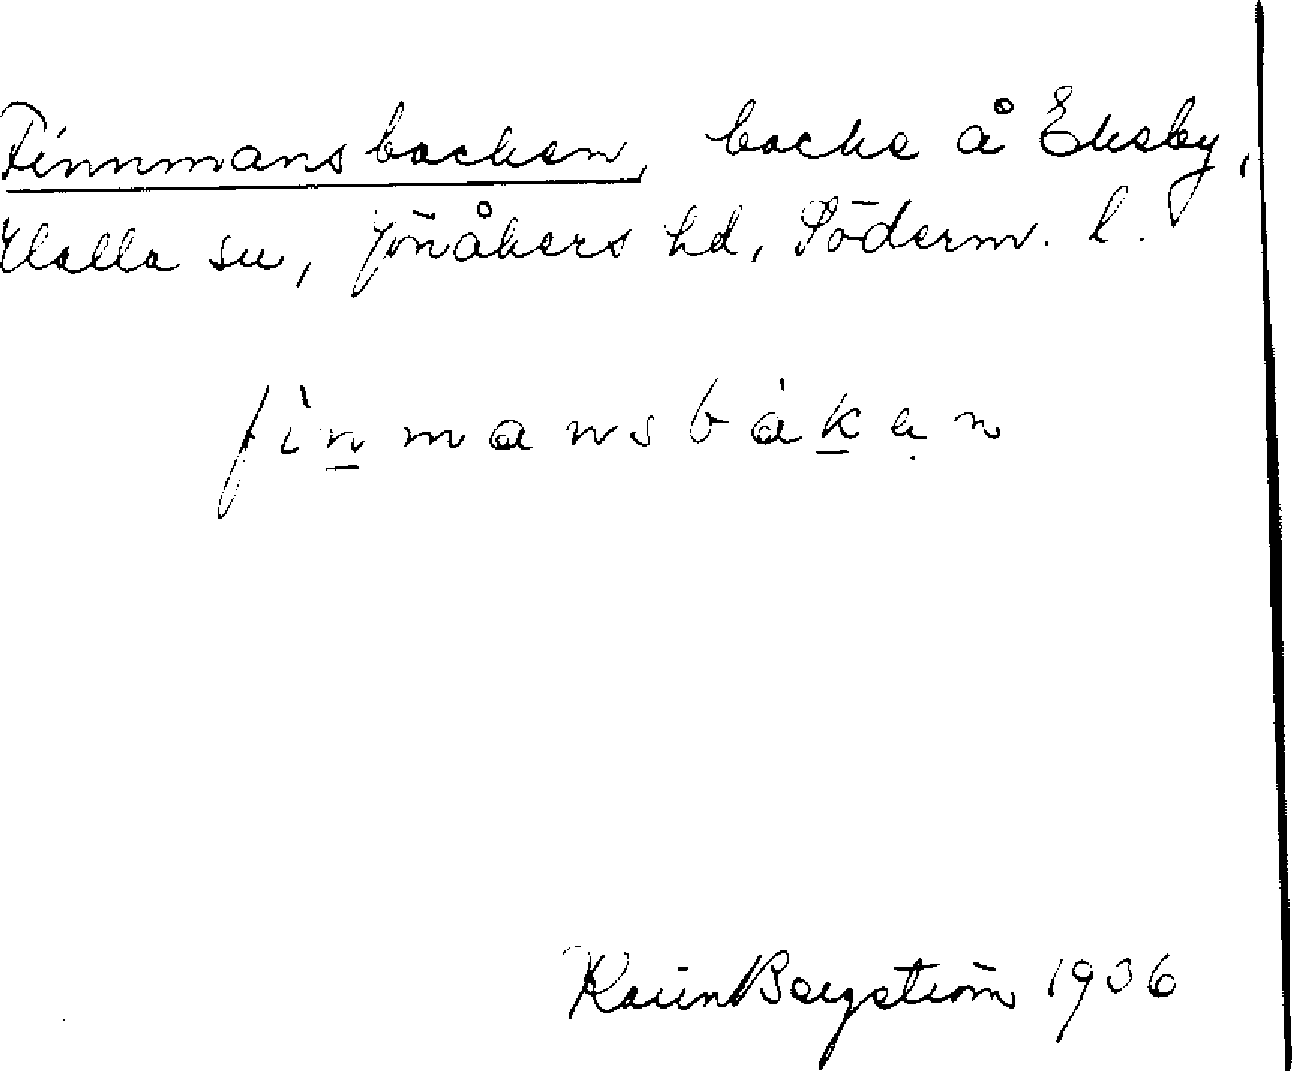 Finnmansbacken, backe å Eksby,
Halla sn, Jönåkers hd, Söderm. l.
fìn̲mansbák̲ạn
Karin Bergström 1936